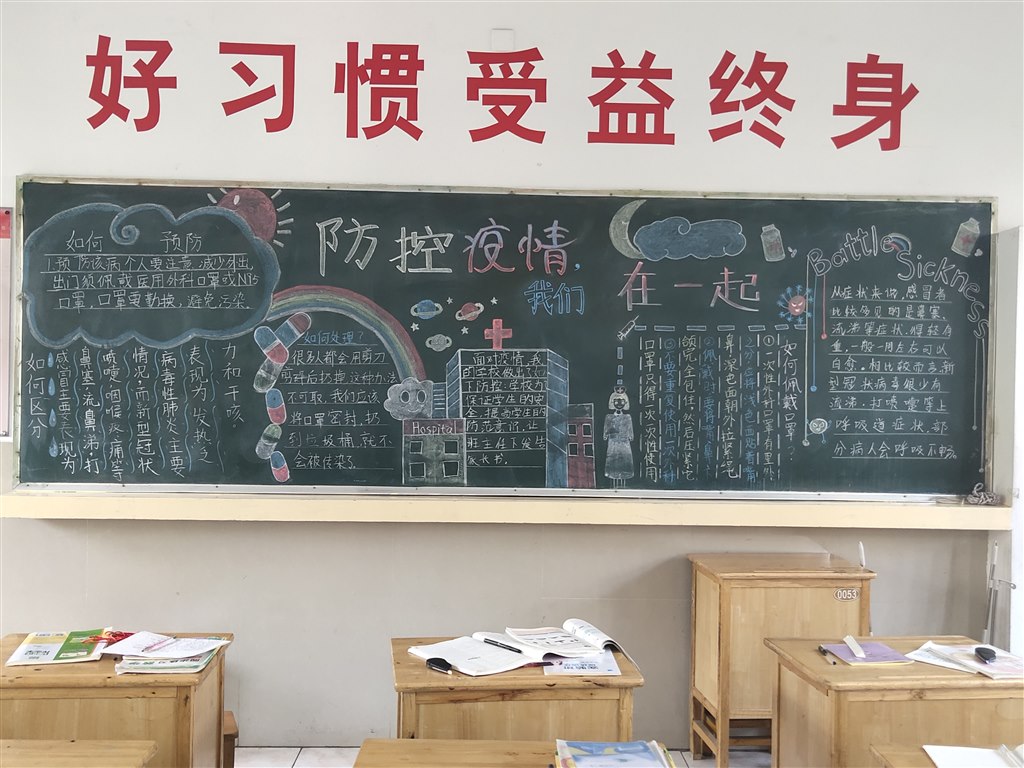 好习惯受益终身
防控疫情,
我们
在一起
如何 预防
预防该病个人要注意,减少外出
出门须佩戴医用外科口罩或N95
口罩,口罩要勤换,避免污染.
如何区分
感冒主要表现为
鼻塞,流鼻涕,打
喷嚏,咽喉疼痛等
情况,而新型冠状
病毒性肺炎主要
表现为发热,乏
力和干咳
如何处理?
很多人都会用剪刀
剪碎后扔掉,这种办法
不可取,我们应该
将口罩密封,扔
到垃圾桶,就不
会被传染了.
Hospital
面对疫情,我
们学校做出了以
下防控:学校为
保证学生的安
全,提高学生的
防范意识,让
班主任下发生
家长书.
如何佩戴口罩?
①一次性外科口罩有里外
之分,已将浅色面贴着嘴
鼻,深色面朝外拉紧绳
②佩戴时要将嘴、鼻、下
颌完全包住,然后压紧
③不要重复使用,一次外科
口罩只得一次次性使用
Battle
Sickness
从症状来做,感冒者
比较常见的是鼻塞,
流涕等症状,得轻有
重,一般一周左右可以
自愈.相比较而言,新
型冠状病毒很少有
流涕、打喷嚏等上
呼吸道症状,部
分病人会呼吸不畅。
0053